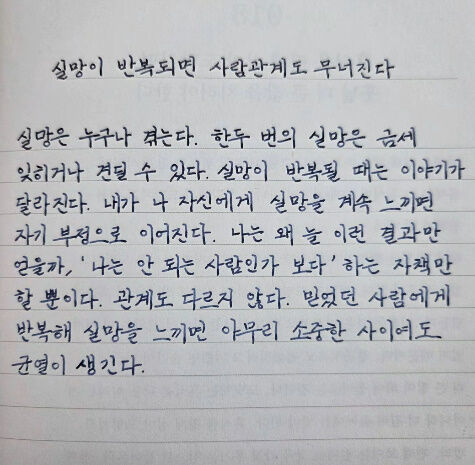 실망이 반복되면 사람관계도 무너진다
실망은 누구나 겪는다. 한두 번의 실망은 금세
잊히거나 견딜 수 있다. 실망이 반복될 때는 이야기가
달라진다. 내가 나 자신에게 실망을 계속 느끼면
자기 부정으로 이어진다. 나는 왜 늘 이런 결과만
얻을까, '나는 안 되는 사람인가 보다' 하는 자책만
할 뿐이다. 관계도 다르지 않다. 믿었던 사람에게
반복해 실망을 느끼면 아무리 소중한 사이여도
균열이 생긴다.